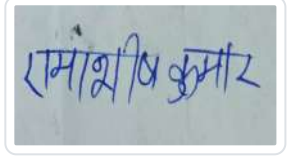 रामाशीष कुमार